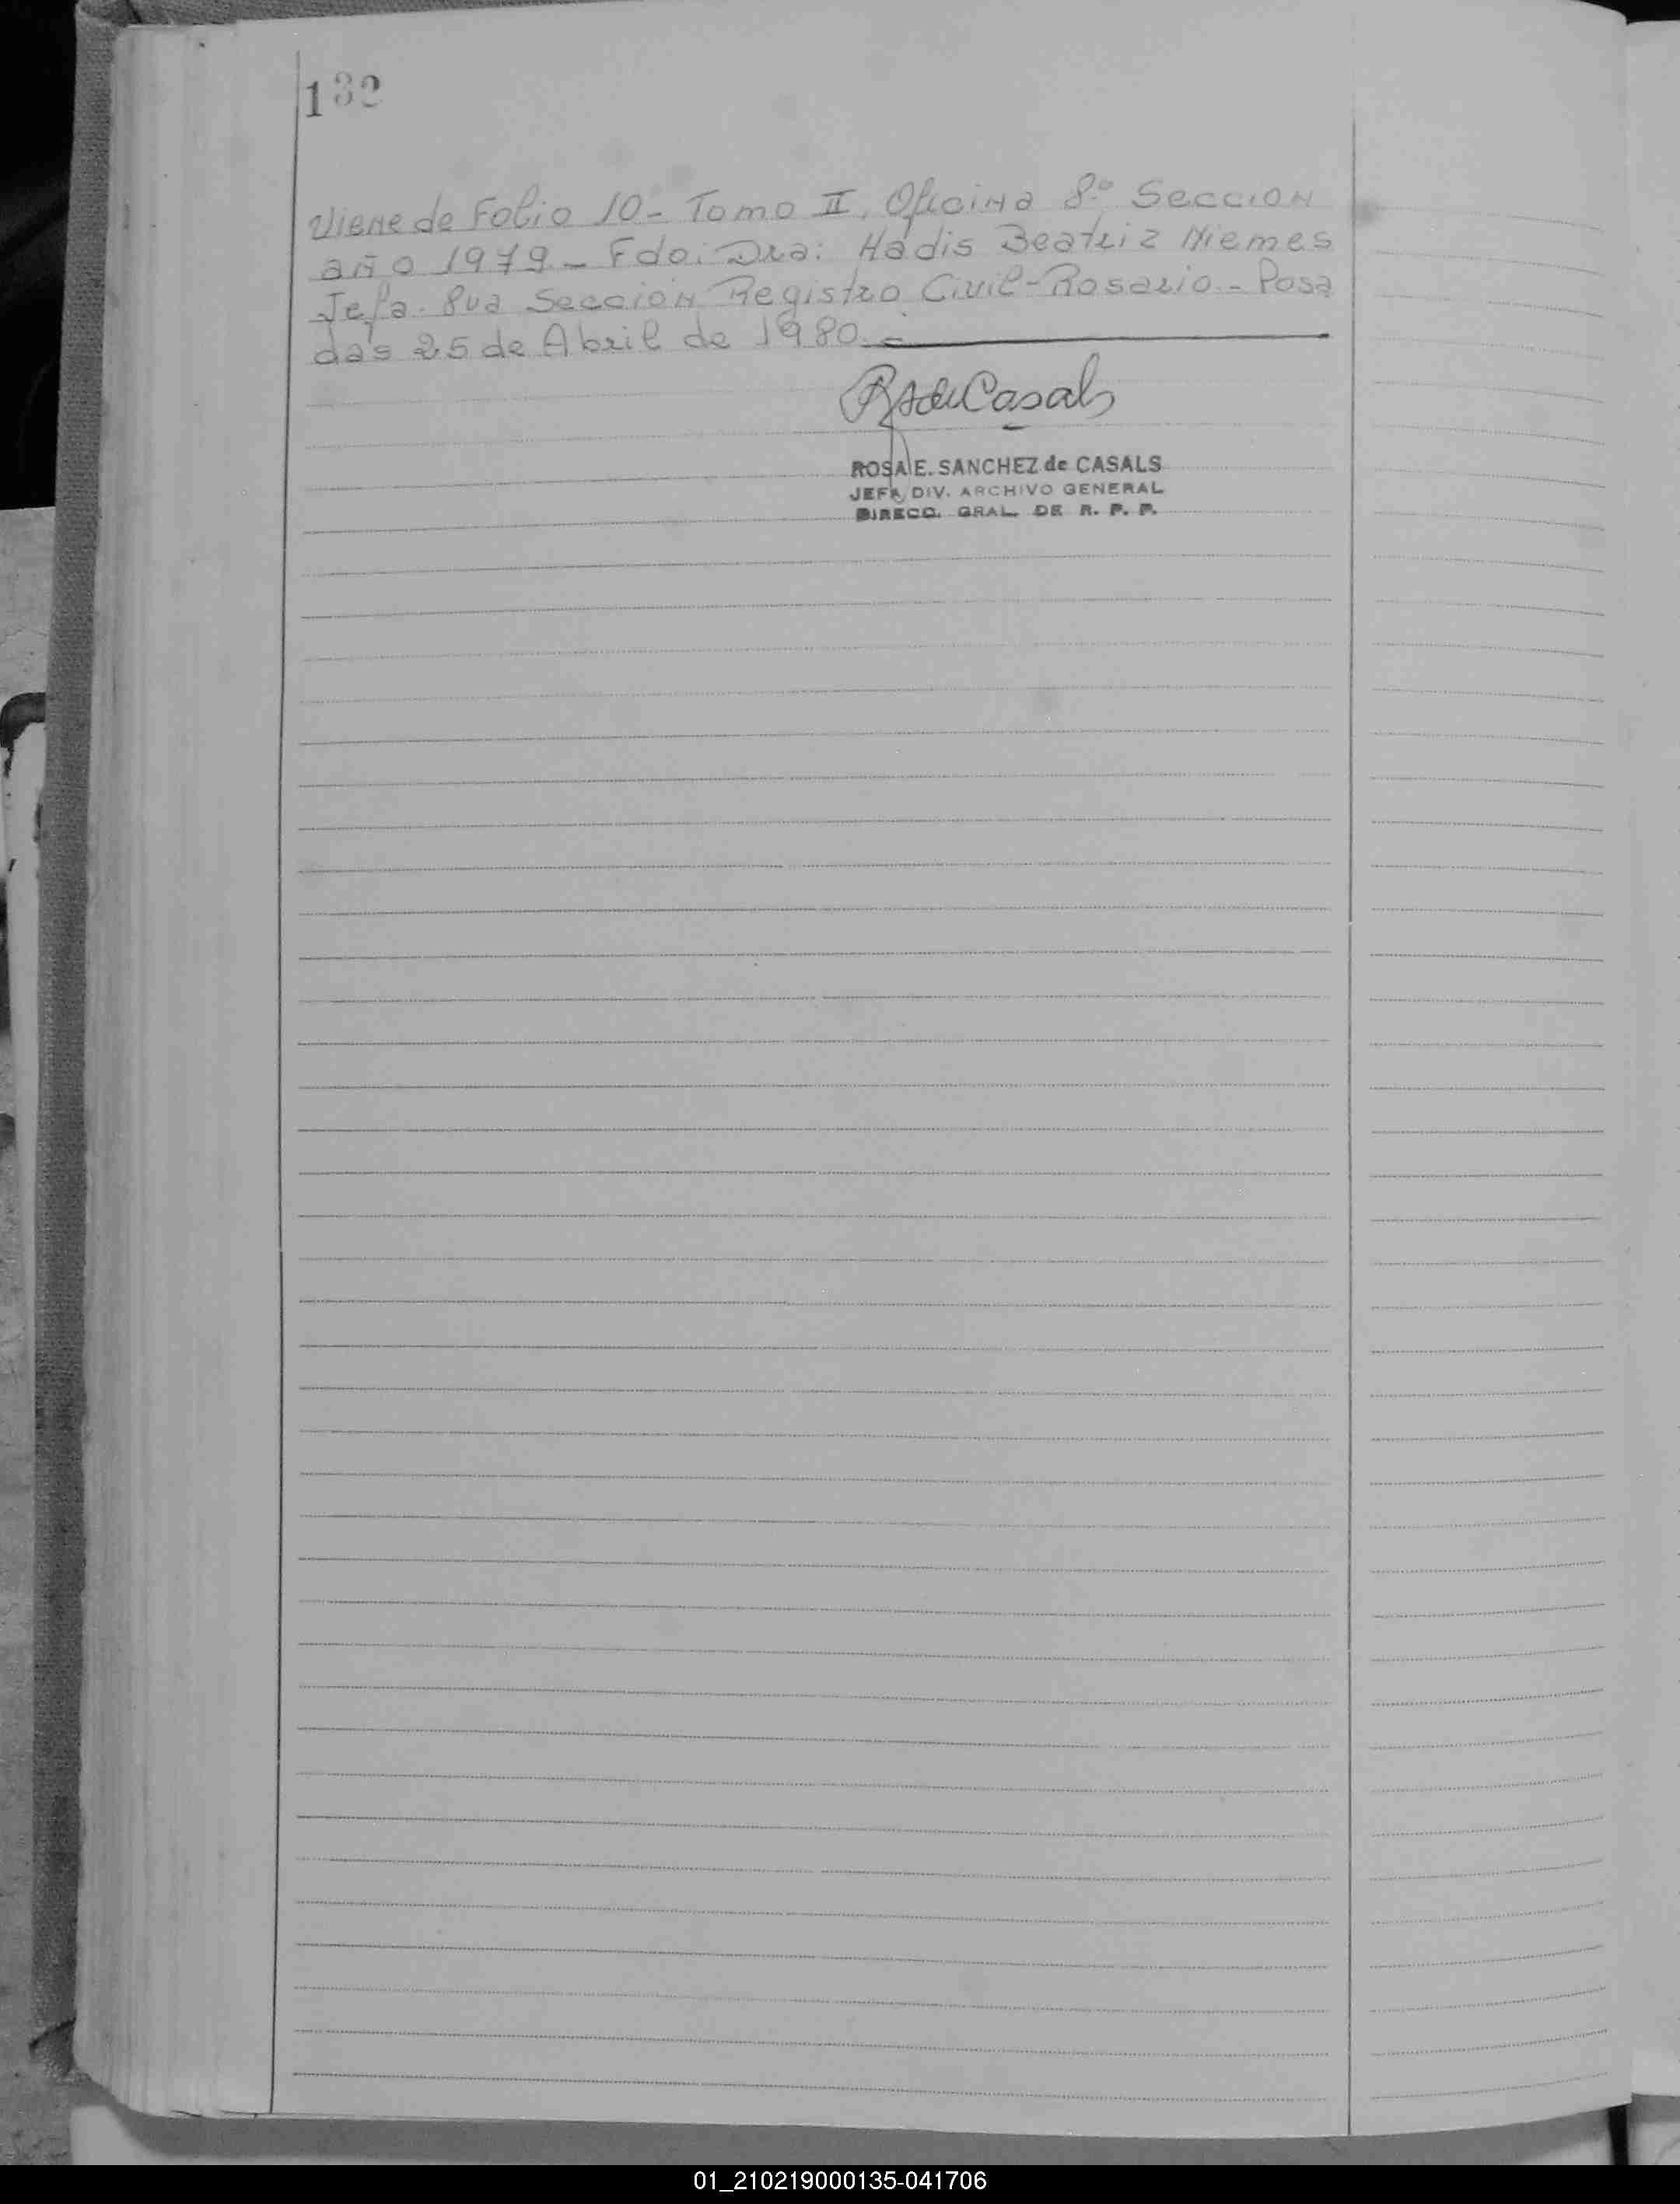 132
Viene de Folio 10 - Tomo II, Oficina 8º Sección
año 1979 - Fdo: Dra: Hadis Beatriz Niemes
Jefa. 8va Sección Registro Civil - Rosario. - Posa
das 25 de Abril de 1980. -
RSdeCasals
ROSA E. SANCHEZ de CASALS
JEFA DIV. ARCHIVO GENERAL
DIRECC. GRAL. DE R. P. P.
01_210219000135-041706